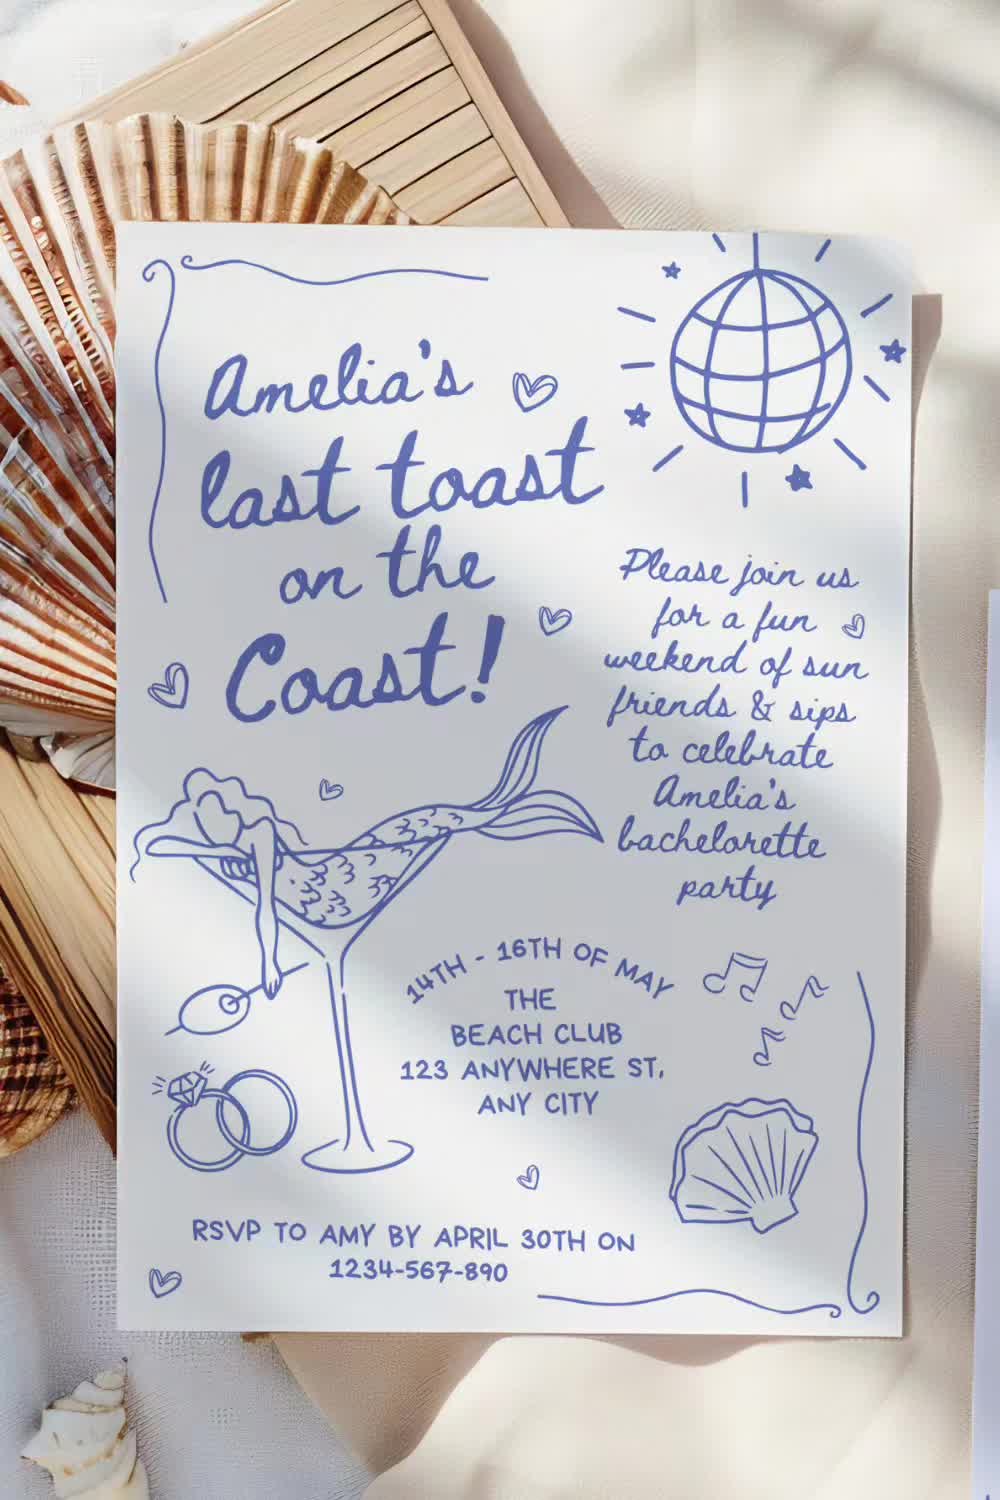 Amelia's
last toast
on the
Coast!
Please join us
for a fun
weekend of sun
friends & sips
to celebrate
Amelia's
bachelorette
party
14TH - 16TH OF MAY
THE
BEACH CLUB
123 ANYWHERE ST,
ANY CITY
RSVP TO AMY BY APRIL 30TH ON
1234-567-890